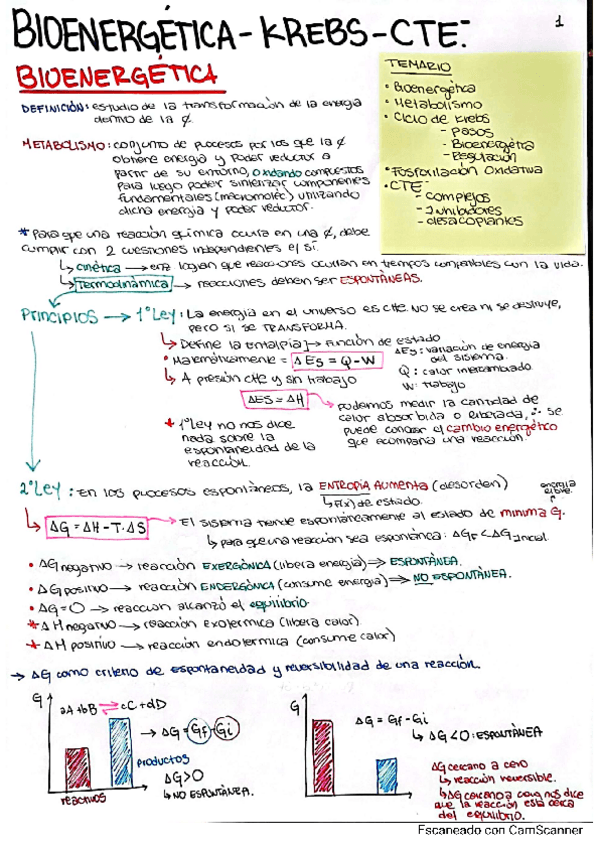 BIOENERGÉTICA - KREBS - CTE:
1
BIOENERGÉTICA
DEFINICIÓN: estudio de la transformación de la energía
dentro de la ȼ.
METABOLISMO: conjunto de procesos por los que la ȼ
obtiene energía y poder reductor a
partir de su entorno, oxidando compuestos
para luego poder sintetizar componentes
fundamentales (macromoléc) utilizando
dicha energía y poder reductor.
TEMARIO
• Bioenergética
• Metabolismo
• Ciclo de Krebs
- Pasos
- Bioenergética
- Regulación
• Fosforilación Oxidativa
• CTE:
- complejos
- Inhibidores
- desacoplantes
* Para que una reacción química ocurra en una ȼ, debe
cumplir con 2 cuestiones independientes e/ sí.
↳ cinética → enz logran que reacciones ocurran en tiempos compatibles con la vida.
↳ Termodinámica → reacciones deben ser ESPONTÁNEAS.
PRINCIPIOS → 1° Ley: La energía en el universo es cte. NO se crea ni se destruye,
pero si se TRANSFORMA.
↳ Define la Entalpía → Función de estado
• Matemáticamente = ΔEs = Q - W
ΔEs: variación de energía
del sistema.
Q: calor intercambiado
W: trabajo
↳ A presión cte y sin trabajo
ΔEs = ΔH
→ podemos medir la cantidad de
calor absorbida o liberada, ∴ se
puede conocer el cambio energético
que acompaña una reacción.
* 1° Ley no nos dice
nada sobre la
espontaneidad de la
reacción.
2° Ley: En los procesos espontáneos, la ENTROPÍA AUMENTA (desorden)
↳ F(x) de estado.
energía
libre
↳ ΔG = ΔH - T.ΔS → El sistema tiende espontáneamente al estado de mínima G.
↳ para que una reacción sea espontánea: ΔGF < ΔG inicial.
• ΔG negativo → reacción EXERGÓNICA (libera energía) ⇒ ESPONTÁNEA.
• ΔG positivo → reacción ENDERGÓNICA (consume energía) ⇒ NO ESPONTÁNEA.
• ΔG = 0 → reacción alcanzó el equilibrio.
* ΔH negativo → reacción exotérmica (libera calor)
* ΔH positivo → reacción endotérmica (consume calor)
→ ΔG como criterio de espontaneidad y reversibilidad de una reacción.
G
aA + bB ⇌ cC + dD
→ ΔG = Gf - Gi
productos
ΔG > 0
↳ NO ESPONTÁNEA.
reactivos
G
ΔG = Gf - Gi
↳ ΔG < 0: ESPONTÁNEA
ΔG cercano a cero
↳ reacción reversible.
↳ ΔG cercano a cero nos dice
que la reacción está cerca
del equilibrio.
Escaneado con CamScanner